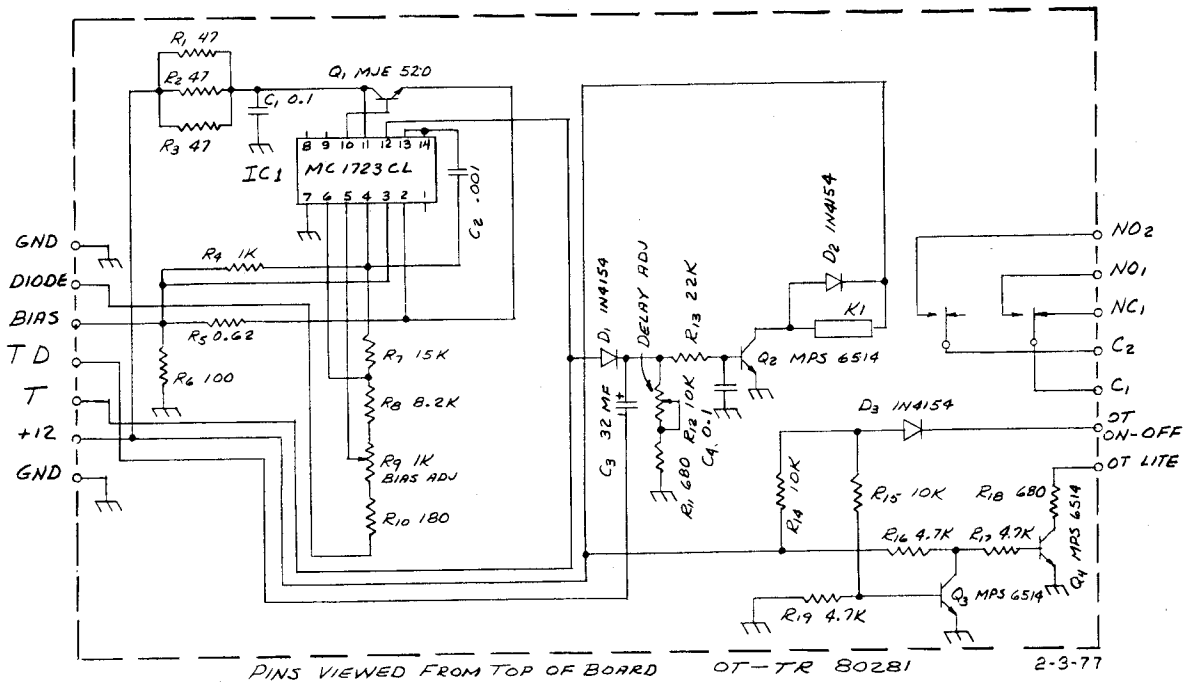 R1 47
R2 47
R3 47
C1 0.1
Q1 MJE 520
8 9 10 11 12 13 14
IC1
MC 1723 CL
7 6 5 4 3 2 1
C2 .001
GND
DIODE
BIAS
TD
T
+12
GND
R4 1K
R5 0.62
R6 100
R7 15K
R8 8.2K
R9 1K
BIAS ADJ
R10 180
D1 1N4154
DELAY ADJ
R13 22K
C3 32 MF
+
R11 680
R12 10K
C4 0.1
D2 1N4154
K1
Q2 MPS 6514
NO2
NO1
NC1
C2
C1
D3 1N4154
OT
ON-OFF
OT LITE
R14 10K
R15 10K
R18 680
R16 4.7K
R17 4.7K
Q4 MPS 6514
Q3 MPS 6514
R19 4.7K
PINS VIEWED FROM TOP OF BOARD
OT-TR 80281
2-3-77